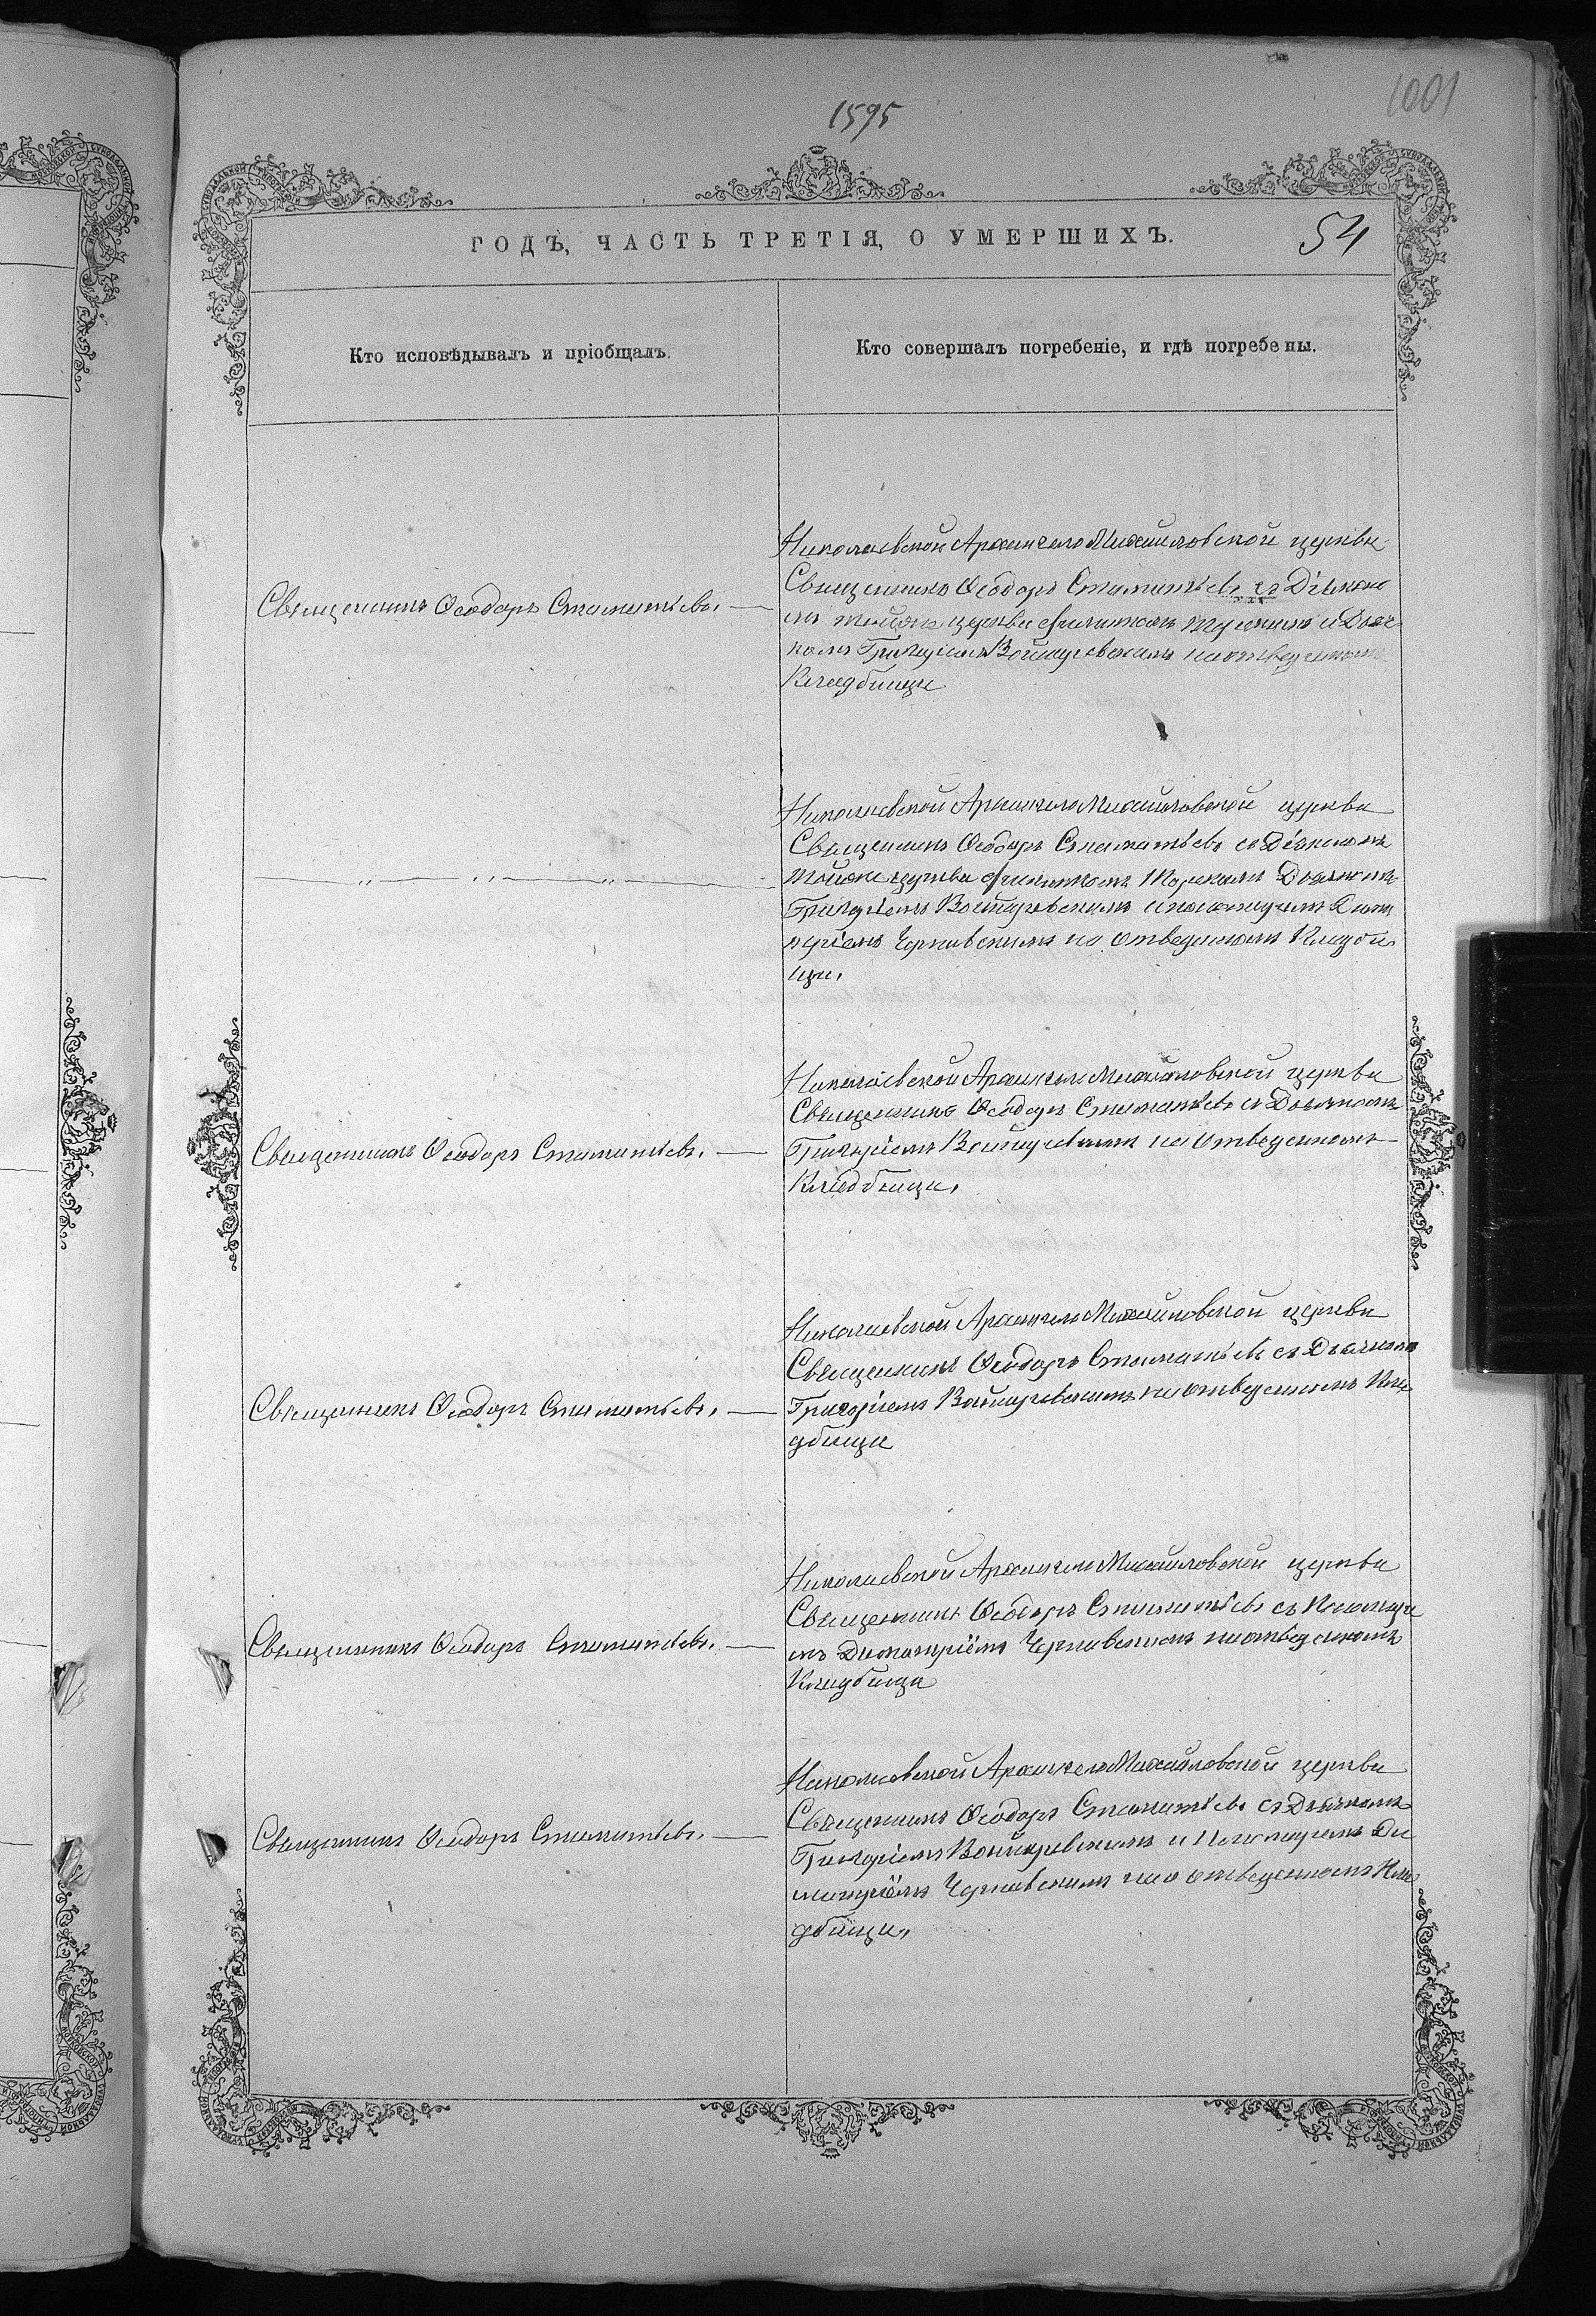 1001
1595
ГОДЪ, ЧАСТЬ ТРЕТІЯ, О УМЕРШИХЪ.
54
Кто исповѣдывалъ и пріобщалъ.
Кто совершалъ погребеніе, и гдѣ погребены.
Священникъ Ѳеодоръ Стаматьевъ.
Николаевской Архангело Михайловской церкви
Священникъ Ѳеодоръ Стаматьевъ съ Діяконо
мъ тойже церкви и Дьяч
комъ Григоріемъ Войцеховскимъ на отведенномъ
Кладбищи
Николаевской Архангело Михайловской церкви
Священникъ Ѳеодоръ Стаматьевъ съ Діякономъ
тойже церкви Дьячкомъ
Григоріемъ и пономаремъ Дими
тріемъ Чернявскимъ на отведенномъ Кладби
щи.
Священникъ Ѳеодоръ Стаматьевъ.
Николаевской Архангело Михайловской церкви
Священникъ Ѳеодоръ Стаматьевъ съ Дьячкомъ
Григоріемъ на отведенномъ
Кладбищи.
Священникъ Ѳеодоръ Стаматьевъ.
Николаевской Архангело Михайловской церкви
Священникъ Ѳеодоръ Стаматьевъ съ Дьячкомъ
Григоріемъ на отведенномъ Кла
дбищи
Священникъ Ѳеодоръ Стаматьевъ.
Николаевской Архангело Михайловской церкви
Священникъ Ѳеодоръ Стаматьевъ съ Пономаре
мъ Димитріемъ Чернявскимъ на отведенномъ
Кладбищи
Священникъ Ѳеодоръ Стаматьевъ.
Николаевской Архангело Михайловской церкви
Священникъ Ѳеодоръ Стаматьевъ съ Дьячкомъ
Григоріемъ и Пономаремъ Ди
митріемъ Чернявскимъ на отведенномъ Кла
дбищи.